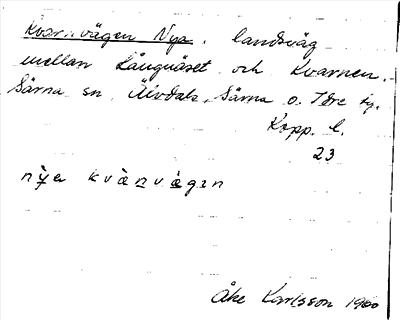 Kvarnvägen Nya. landsväg
mellan Långnäset och Kvarnen.
Särna sn, Älvdals, Särna o. Idre tg.
Kopp. l.
23
nỵ̀a kvằnvägən
Åke Karlsson 1960